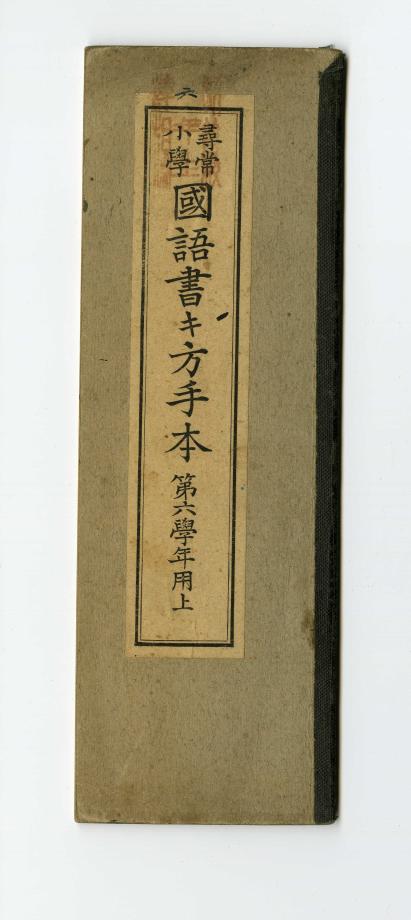 六
尋常
小學
國語書キ方手本
第六學年用上